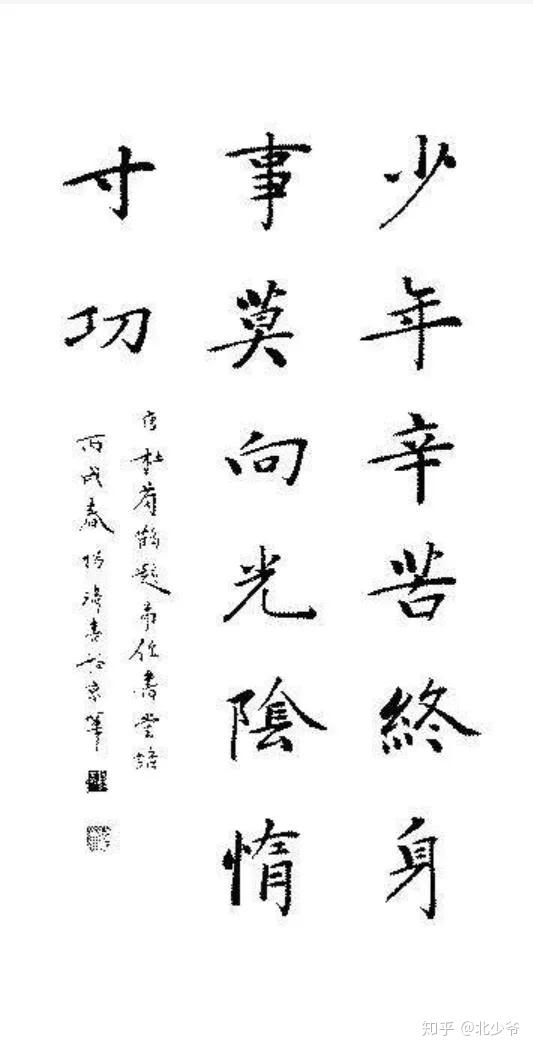 少年辛苦終身
事莫向光陰惰
寸功
唐杜荀鶴題弟侄書堂語
丙戌春 書於京華
知乎 @北少爷